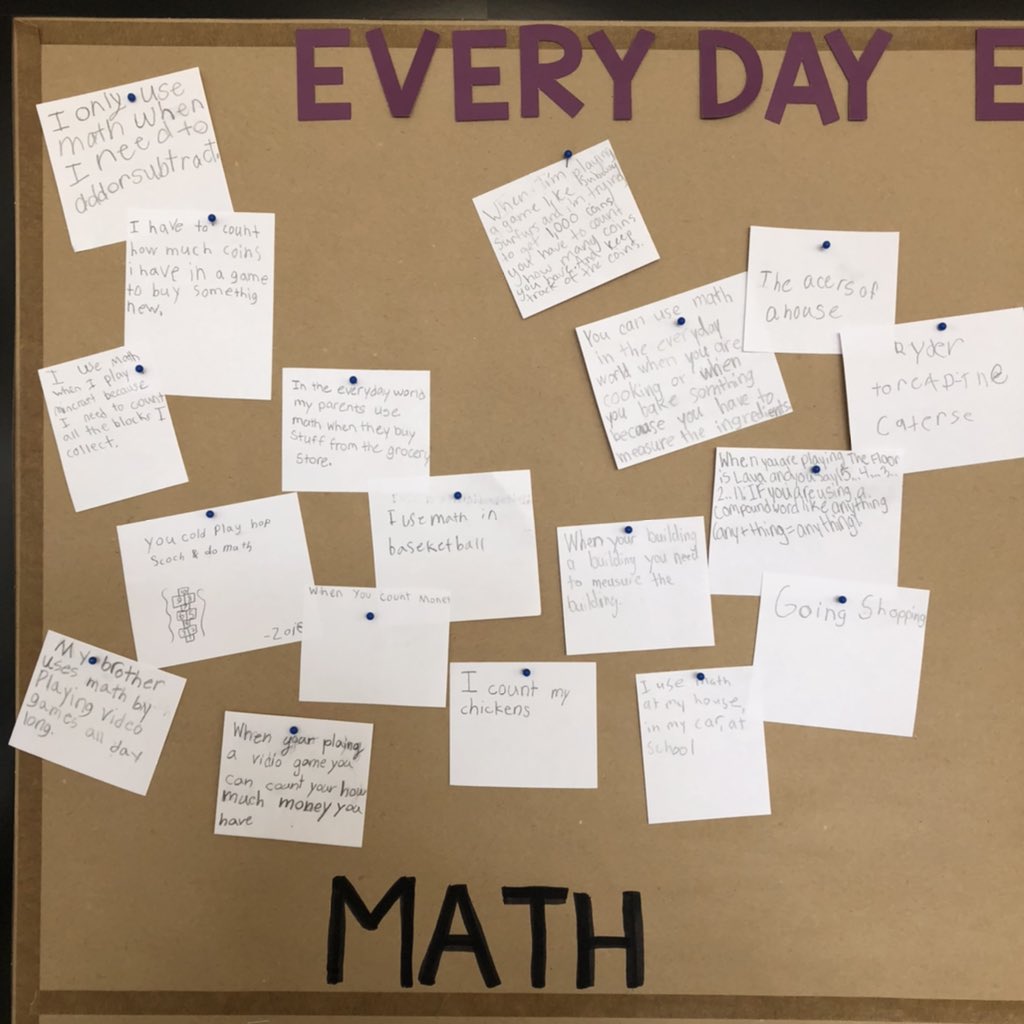 EVERY DAY E
I only use
math when
I need to
addorsubtract.
I have to count
how much coins
i have in a game
to buy somethig
new.
When I'm playing
a game like Subway
Surfurs and i'm trying
to get 1,000 coins!
your have to count
how many coins
you have. And keep
track of the coins.
The acers of
a house
You can use math
in the everyday
world when you are
cooking or when
you bake somthing
because you have to
measure the ingredients
Ryder
Caterse
I use Math
when I play
mincraft because
I need to count
all the blocks I
collect.
In the everyday world
my parents use
math when they buy
Stuff from the grocery
Store.
When you are playing The Floor
is Lava and you say (5...4...3...
2...1). IF you are using a
compound word like anything
(any+thing=anything)!
I use math in
baseketball
you cold play hop
Scoch & do math
-Zoie
When your building
a building you need
to measure the
building.
When you count Money
Going Shopping
My brother
uses math by
Playing video
games all day
long.
I count my
chickens
I use math
at my house,
in my car, at
school
When your plaing
a vidio game you
can count your how
much money you
have
MATH